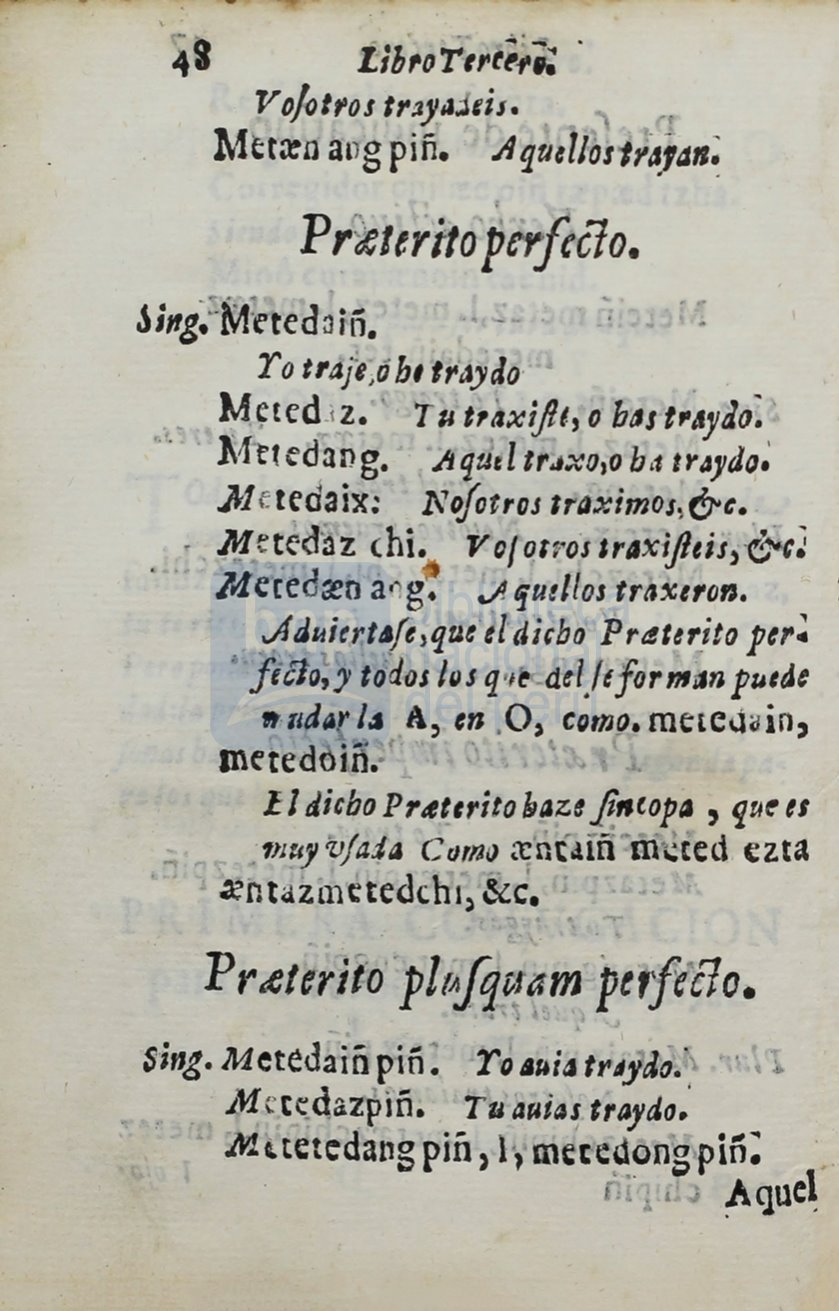 48 Libro Tercero.
Vosotros trayades.
Metæn ang piñ. Aquellos trayan.
Præterito perfecto.
Sing. Metedaiñ.
Yo traje, o he traydo
Metedaz. Tu traxiste, o has traydo.
Metedang. Aquel traxo, o ha traydo.
Metedaix: Nosotros traximos, &c.
Metedaz chi. Vosotros traxisteis, &c.
Metedæn ang. Aquellos traxeron.
Aduiertase, que el dicho Præterito per-
fecto, y todos los que del se forman puede
mudar la A, en O, como. metedain,
metedoiñ.
El dicho Præterito haze sincopa, que es
muy vsada Como æntaiñ meted ezta
æntazmetedchi, &c.
Præterito plusquam perfecto.
Sing. Metedaiñ piñ. Yo auia traydo.
Metedazpiñ. Tu auias traydo.
Metetedang piñ, l, metedong piñ.
Aquel